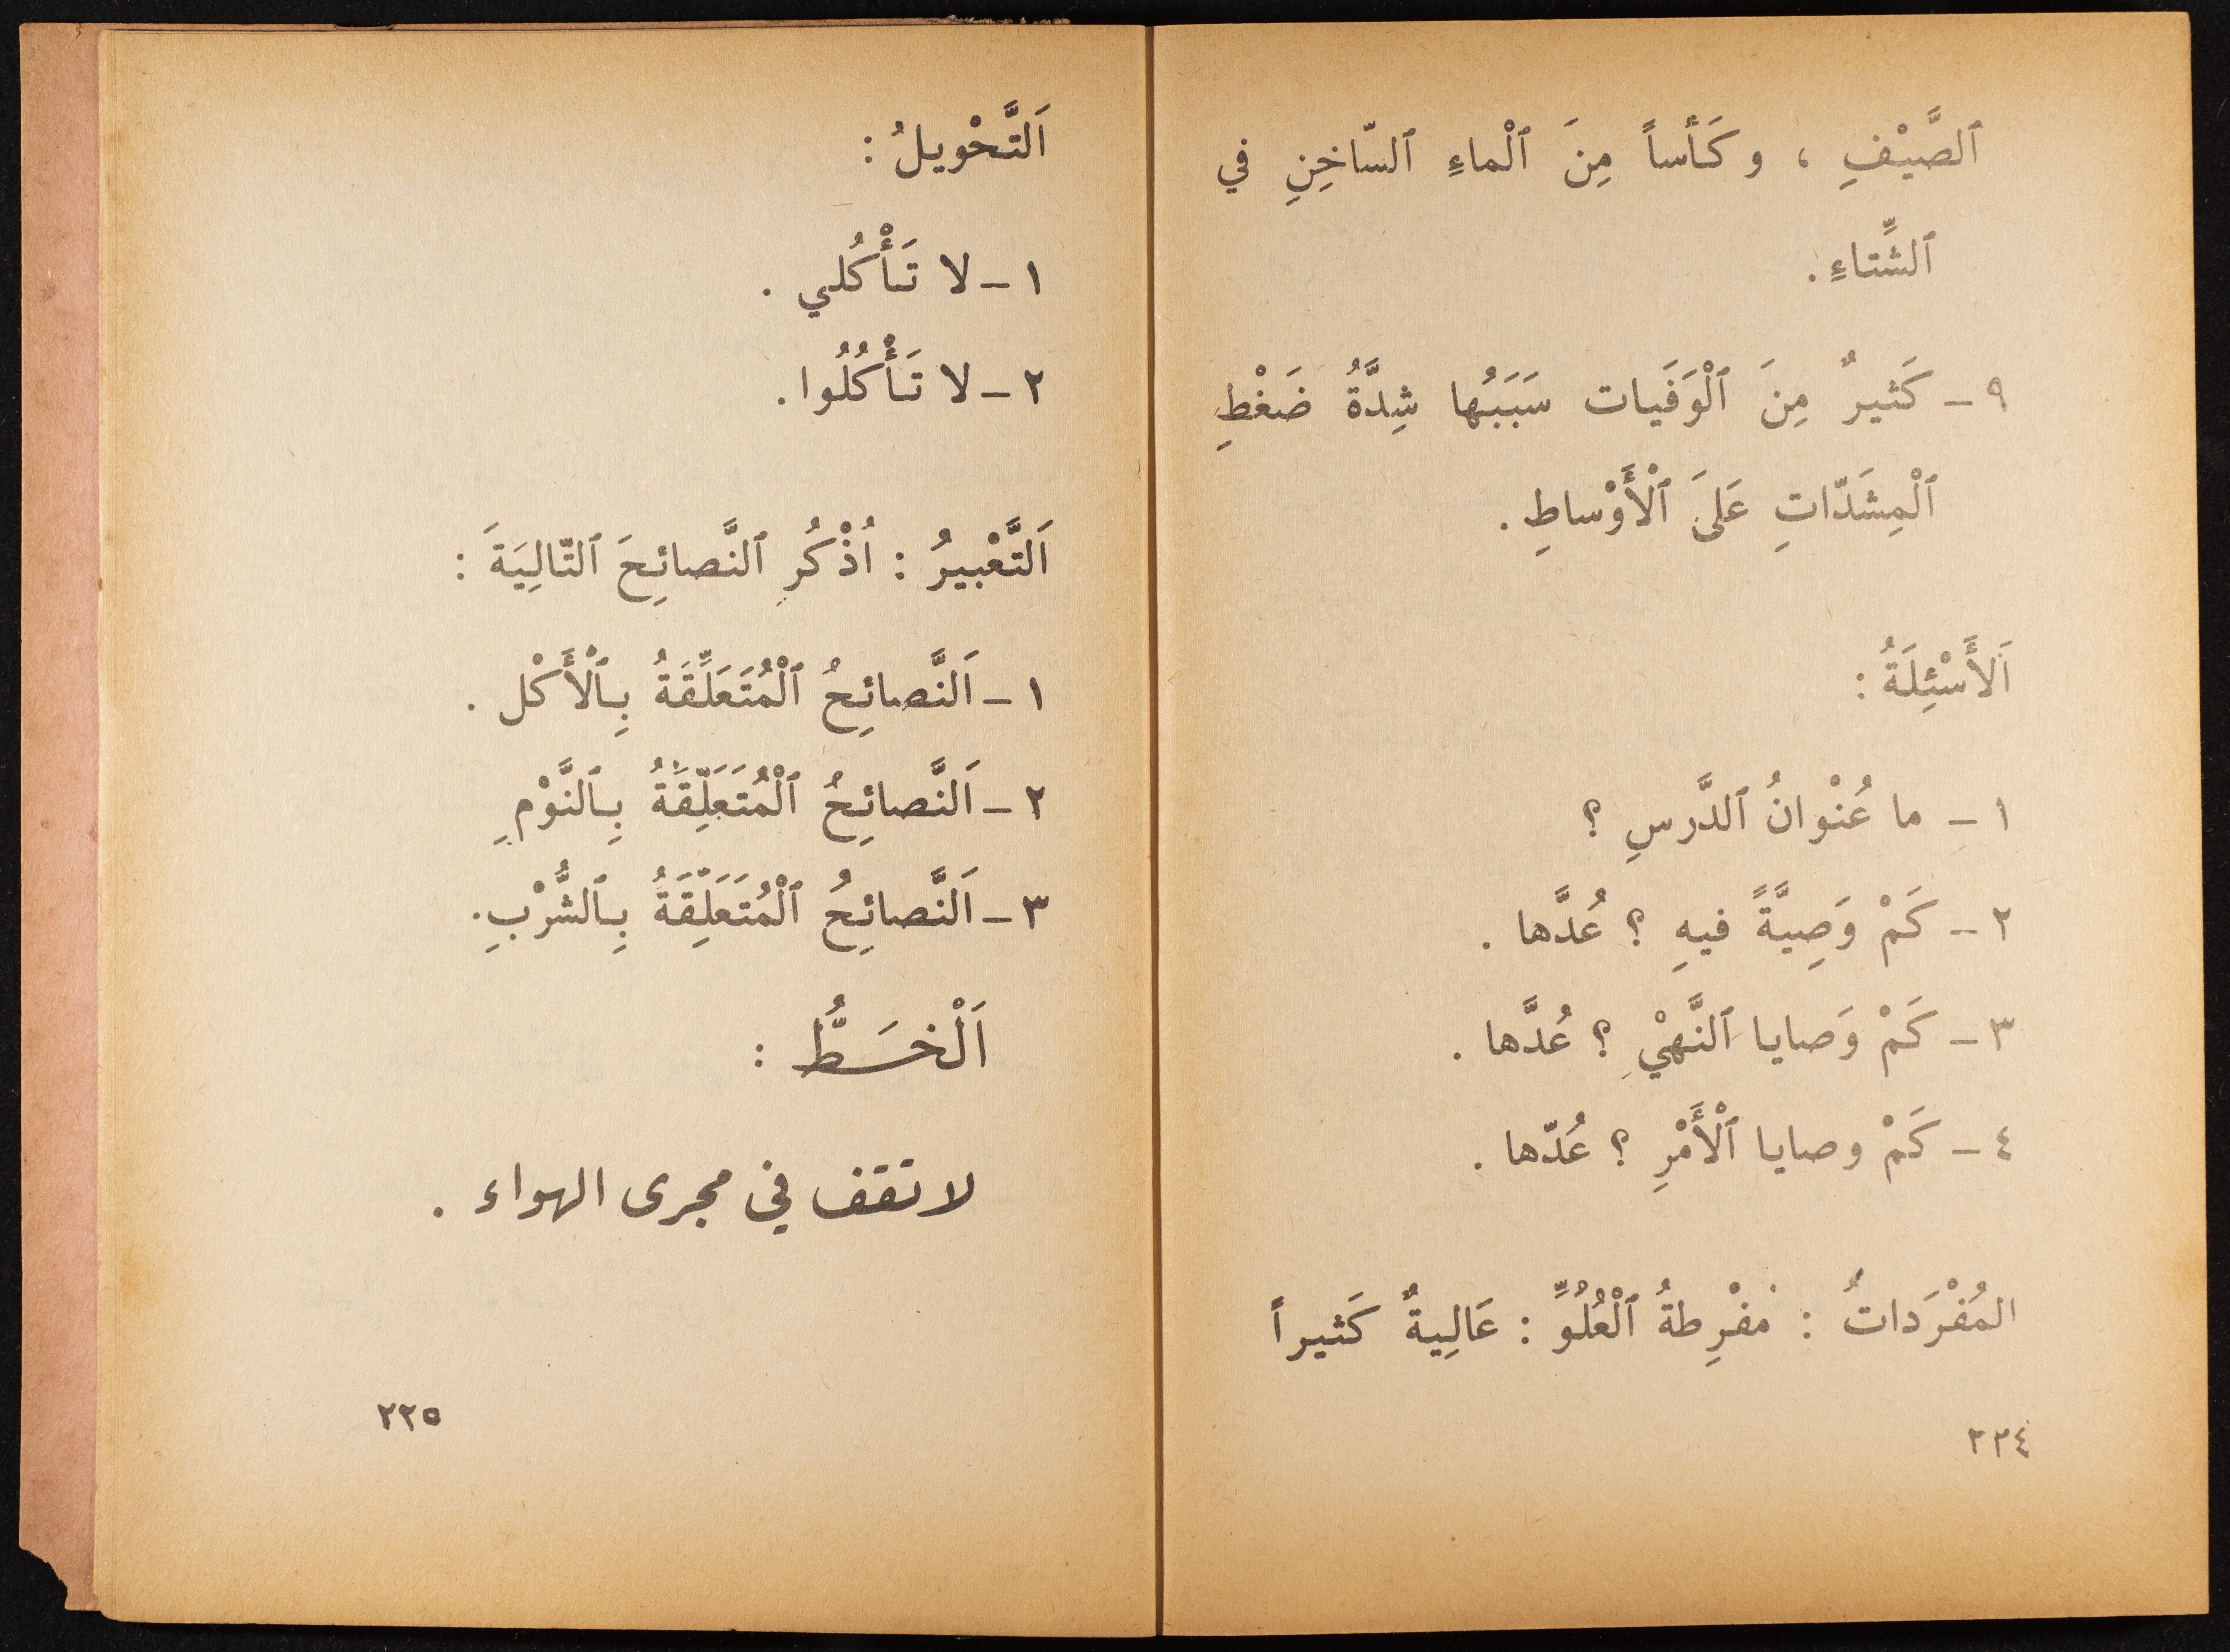 ٱلصَّيْفِ ، وكَأساً مِنَ ٱلْماءِ ٱلسّاخِنِ في
ٱلشِّتاءِ .
٩ – كَثيرٌ مِنَ ٱلْوَفَيات سَبَبُها شِدَّةُ ضَغْطِ
ٱلْمِشَدّاتِ عَلىَ ٱلْأَوْساطِ .
اَلأَسْئِلَةُ :
١ – ما عُنْوانُ ٱلدَّرسِ ؟
٢ – كَمْ وَصِيَّةً فيهِ ؟ عُدَّها .
٣ – كَمْ وَصايا ٱلنَّهْيِ ؟ عُدَّها .
٤ – كَمْ وصايا ٱلْأَمْرِ ؟ عُدّها .
المُفْرَداتُ : مُفْرِطةُ ٱلْعُلُوِّ : عَالِيةٌ كَثيراً
٢٢٤
اَلتَّحْويلُ :
١ – لا تَأْكُلي .
٢ – لا تَأْكُلُوا .
اَلتَّعْبيرُ : اُذْكُرِ ٱلنَّصائِحَ ٱلتّالِيَةَ :
١ – اَلنَّصائِحُ ٱلْمُتَعَلِّقَةُ بِٱلْأَكْل .
٢ – اَلنَّصائِحُ ٱلْمُتَعَلِّقَةُ بِٱلنَّوْمِ
٣ – اَلنَّصائِحُ ٱلْمُتَعَلِّقَةُ بِٱلشُّرْبِ .
اَلْخَطُّ :
لا تقف في مجرى الهواء .
٢٢٥